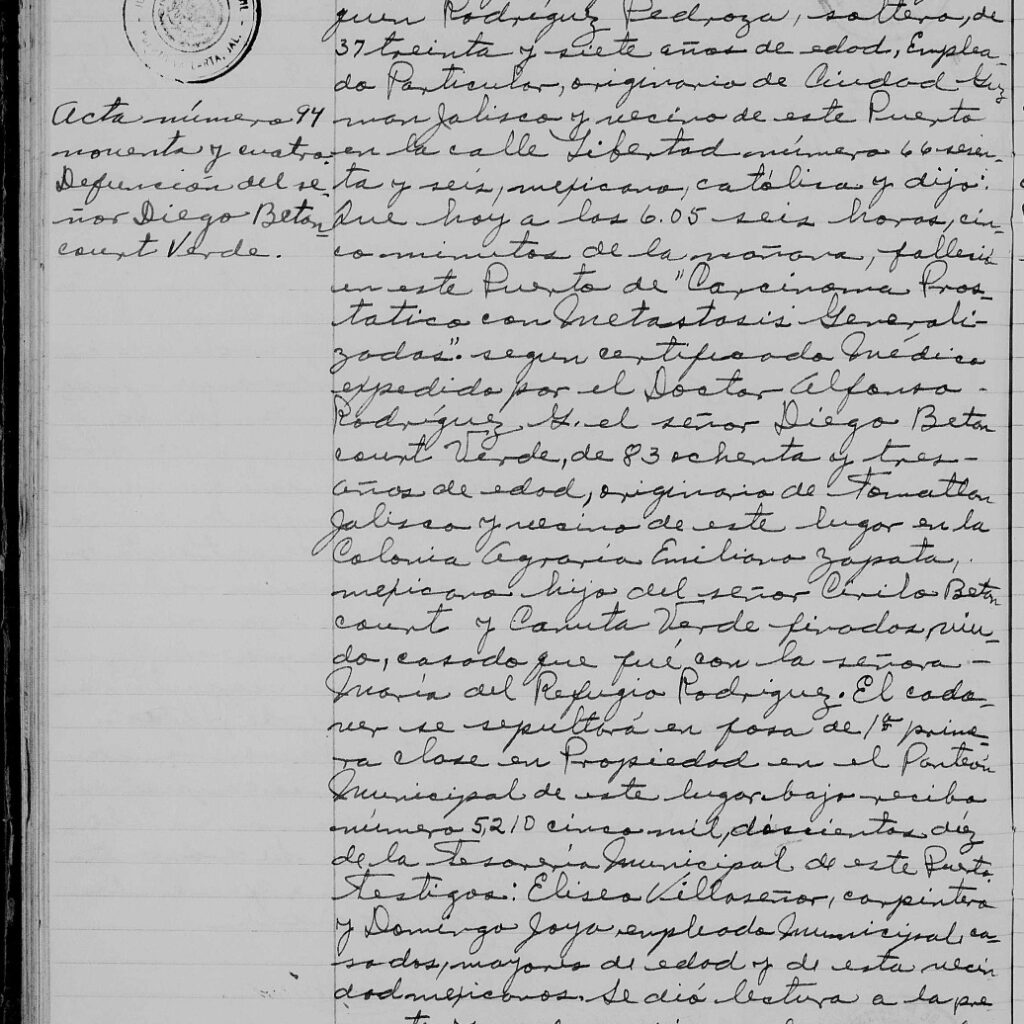 VALLARTA, JAL.
Acta número 94
noventa y cuatro.
Defunción del se-
ñor Diego Betan
court Verde.
quin Rodríguez Pedroza, soltero, de
37 treinta y siete años de edad, Emplea-
do Particular, originario de Ciudad Guz
man Jalisco y vecino de este Puerto
en la calle Libertad número 66 sesen-
ta y seis, mexicano, católico y dijo:
Que hoy a las 6.05 seis horas, cin-
co minutos de la mañana, falleció
en este Puerto de "Carcinoma Pros-
tatico con Metastasis Generali-
zadas". segun certificado Médico
expedido por el Doctor Alfonso -
Rodríguez G. el señor Diego Betan
court Verde, de 83 ochenta y tres -
años de edad, originario de Tomatlan
Jalisco y vecino de este lugar en la
Colonia Agraria Emiliano Zapata,
mexicano hijo del señor Cirilo Betan
court y Canuta Verde finados, viu-
do, casado que fué con la señora -
María del Refugio Rodriguez. El cada-
ver se sepultará en fosa de 1ª prime-
ra clase en Propiedad en el Panteón
Municipal de este lugar bajo recibo
número 5,210 cinco mil, doscientos diéz
de la Tesorería Municipal de este Puerto.
Testigos: Eliseo Villaseñor, carpintero
y Domingo Joya empleado Municipal, ca-
sados, mayores de edad y de esta vecin
dad mexicanos. Se dió lectura a la pre